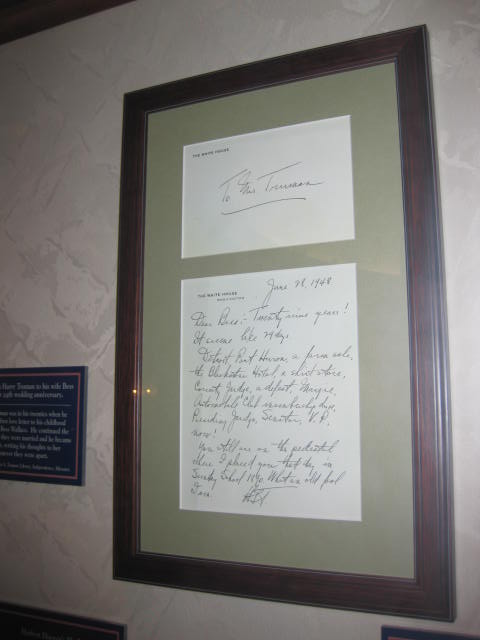 THE WHITE HOUSE
To Mrs. Truman
THE WHITE HOUSE
WASHINGTON
June 28, 1948
Dear Bess:- Twenty nine years!
It seems like 29 days.
Detroit, Port Huron, a farm sale,
the Blackstone Hotel, a shirt store,
County Judge, a defeat, Margie,
Automobile Club membership drive,
Presiding Judge, Senator, V.P.,
now!
You still are on the pedestal
where I placed you that day in
Sunday School 1890. What an old fool
I am.
HST
Harry Truman to his wife Bess
29th wedding anniversary.
man was in his twenties when he
first love letter to his childhood
Bess Wallace. He continued the
they were married and he became
writing his thoughts to her
whenever they were apart.
S. Truman Library, Independence, Missouri